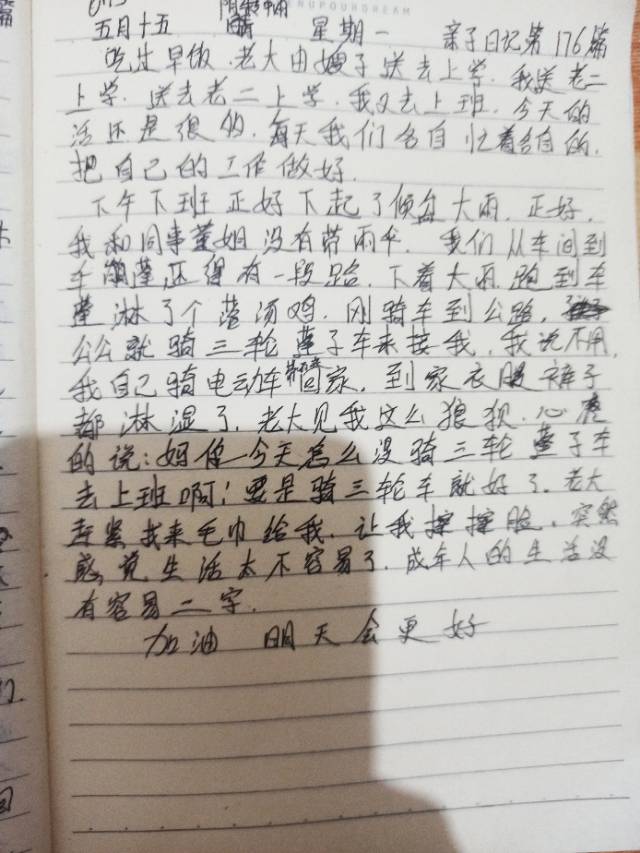 五月十五 阴转中雨 星期一 亲子日记第176篇
吃过早饭.老大由嫂子送去上学.我送老二
上学.送去老二上学.我又去上班.今天的
活还是很的.每天我们各自忙着各自的.
把自己的工作做好.
下午下班正好下起了倾盆大雨.正好.
我和同事董姐没有带雨伞.我们从车间到
车蓬还得有一段路.下着大雨跑到车
蓬淋了个落汤鸡.刚骑车到公路.
公公就骑三轮蓬子车来接我.我说不用.
我自己骑电动车回家.到家衣服裤子
都淋湿了.老大见我这么狼狈.心疼
的说:妈你今天怎么没骑三轮蓬子车
去上班啊!要是骑三轮车就好了.老大
赶紧找来毛巾给我.让我擦擦脸.突然
感觉生活太不容易了.成年人的生活没
有容易二字.
加油 明天会更好